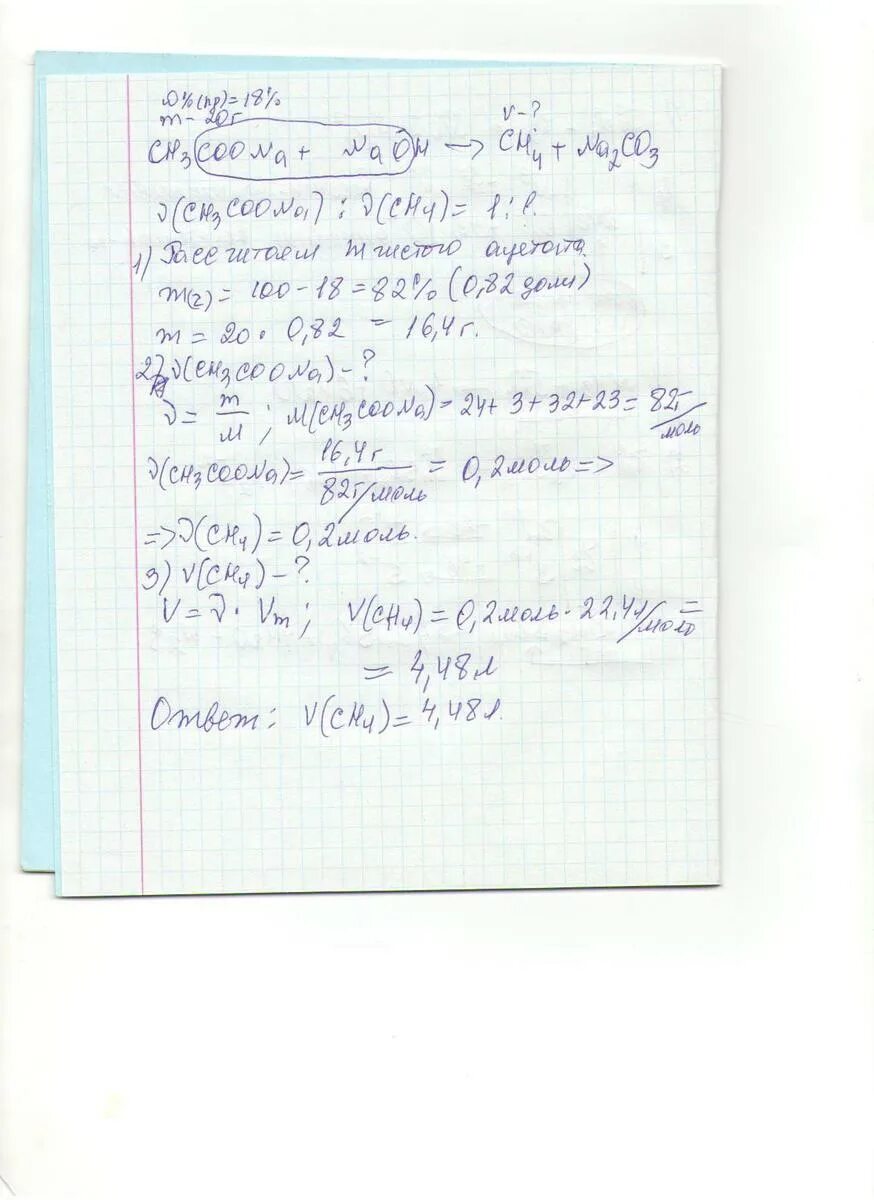 ω%(пр)=18%
m - 20г
V - ?
CH₃COONa + NaOH → CH₄ + Na₂CO₃
ν(CH₃COONa) : ν(CH₄) = 1 : 1.
1) Рассчитаем m чистого ацетата.
m(ч) = 100 - 18 = 82% (0,82 доли)
m = 20 · 0,82 = 16,4 г.
2) ν(CH₃COONa) - ?
ν = m/M ; M(CH₃COONa) = 24 + 3 + 32 + 23 = 82г/моль
ν(CH₃COONa) = 16,4 г / 82г/моль = 0,2 моль =>
=> ν(CH₄) = 0,2 моль.
3) V(CH₄) - ?
V = ν · Vm ; V(CH₄) = 0,2 моль · 22,4 л/моль =
= 4,48 л
Ответ : V(CH₄) = 4,48 л.